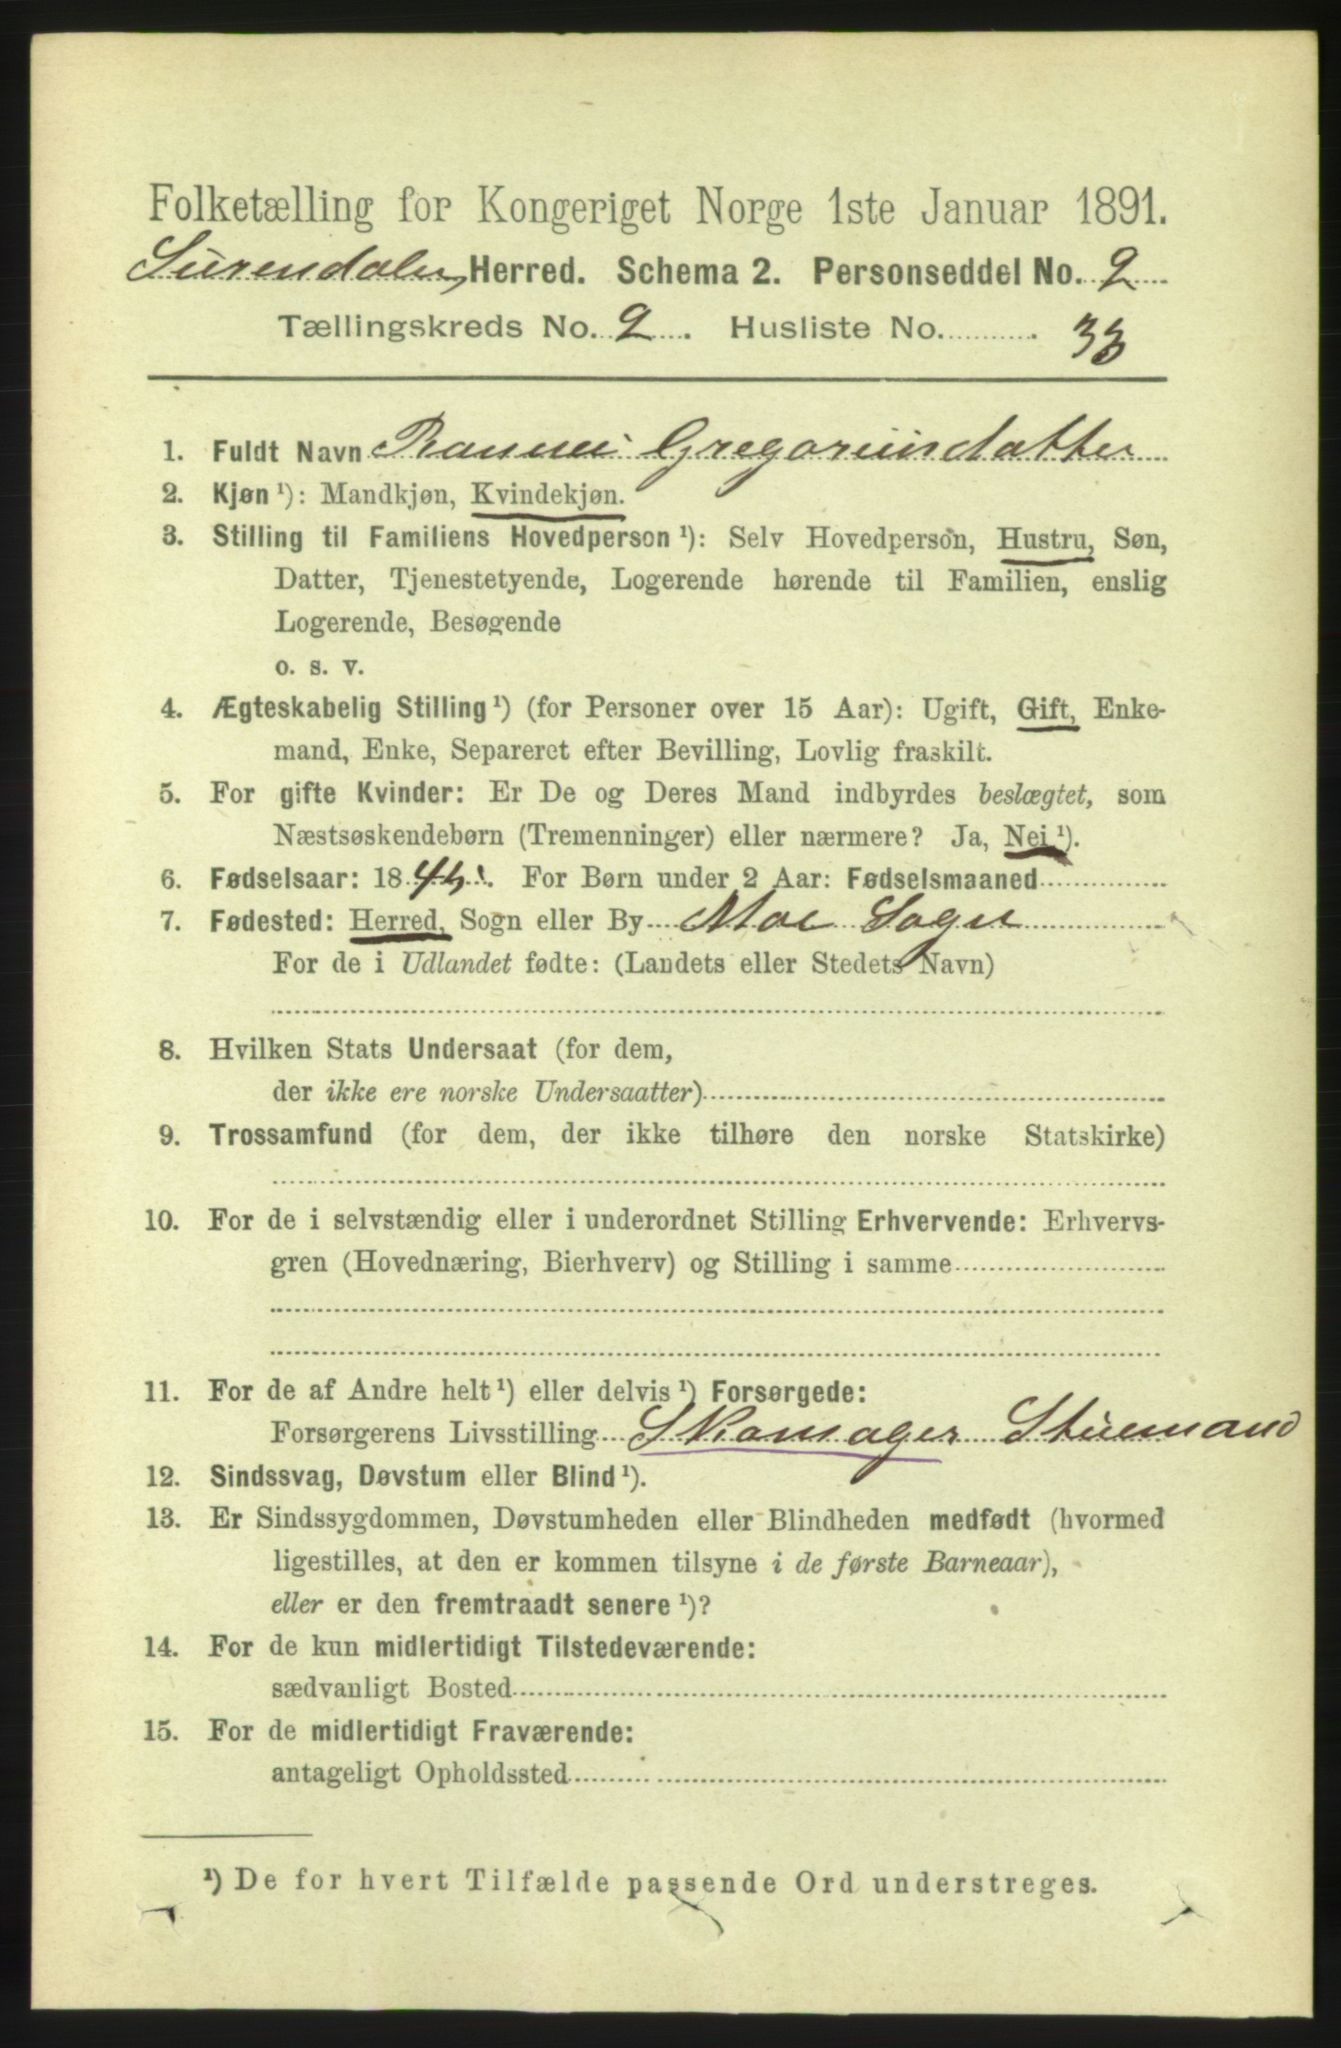 Folketælling for Kongeriget Norge 1ste Januar 1891.
Surendalen Herred. Schema 2. Personseddel No. 2
Tællingskreds No. 2. Husliste No. 33
1. Fuldt Navn Rannei Gregoriusdatter
2. Kjøn ¹): Mandkjøn, Kvindekjøn.
3. Stilling til Familiens Hovedperson ¹): Selv Hovedperson, Hustru, Søn,
Datter, Tjenestetyende, Logerende hørende til Familien, enslig
Logerende, Besøgende
o. s. v.
4. Ægteskabelig Stilling ¹) (for Personer over 15 Aar): Ugift, Gift, Enke-
mand, Enke, Separeret efter Bevilling, Lovlig fraskilt.
5. For gifte Kvinder: Er De og Deres Mand indbyrdes beslægtet, som
Næstsøskendebørn (Tremenninger) eller nærmere? Ja, Nei ¹).
6. Fødselsaar: 18 . For Børn under 2 Aar: Fødselsmaaned
7. Fødested: Herred, Sogn eller By Moe Sogn
For de i Udlandet fødte: (Landets eller Stedets Navn)
8. Hvilken Stats Undersaat (for dem,
der ikke ere norske Undersaatter)
9. Trossamfund (for dem, der ikke tilhøre den norske Statskirke)
10. For de i selvstændig eller i underordnet Stilling Erhvervende: Erhvervs-
gren (Hovednæring, Bierhverv) og Stilling i samme
11. For de af Andre helt ¹) eller delvis ¹) Forsørgede:
Forsørgerens Livsstilling Skomager Stuemand
12. Sindssvag, Døvstum eller Blind ¹).
13. Er Sindssygdommen, Døvstumheden eller Blindheden medfødt (hvormed
ligestilles, at den er kommen tilsyne i de første Barneaar),
eller er den fremtraadt senere ¹)?
14. For de kun midlertidigt Tilstedeværende:
sædvanligt Bosted
15. For de midlertidigt Fraværende:
antageligt Opholdssted
¹) De for hvert Tilfælde passende Ord understreges.